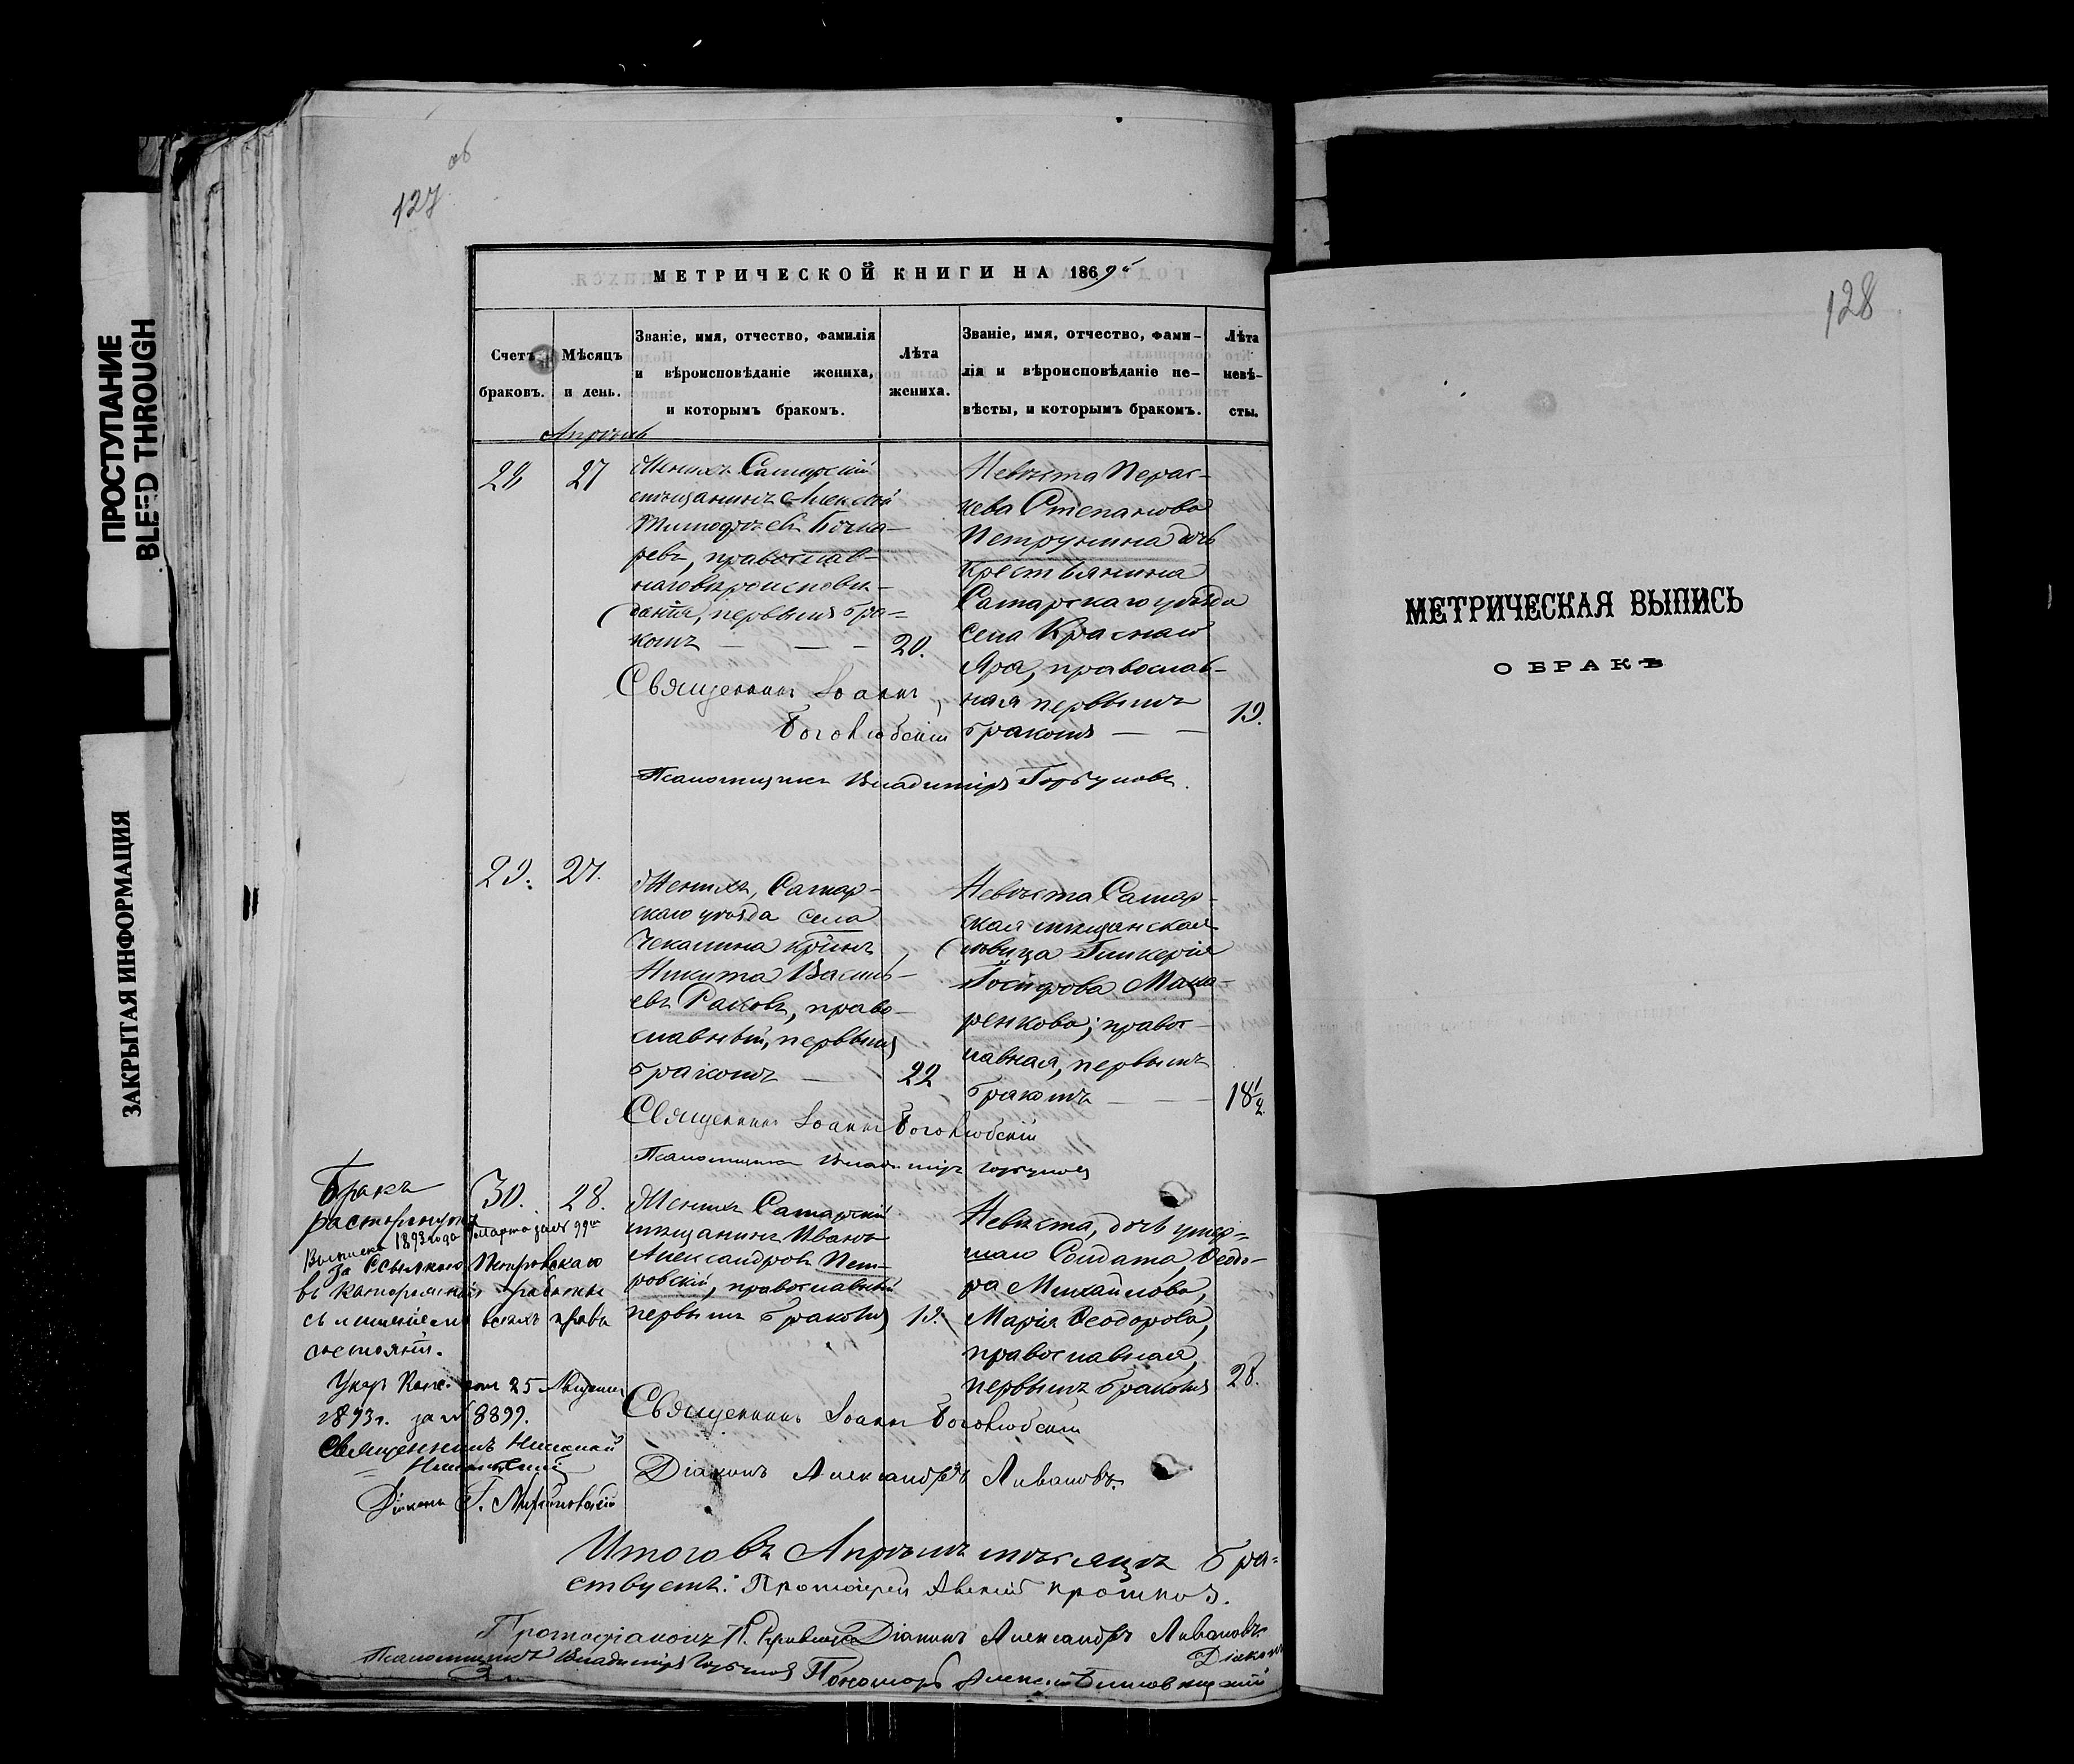 об
127
128
ПРОСТУПАНИЕ
BLEED THROUGH
ЗАКРЫТАЯ ИНФОРМАЦИЯ
МЕТРИЧЕСКОЙ КНИГИ НА 1869й
Счетъ браковъ.
Мѣсяцъ и день.
Званіе, имя, отчество, фамилія
и вѣроисповѣданіе жениха,
и которымъ бракомъ.
Лѣта
жениха.
Званіе, имя, отчество, фами-
лія и вѣроисповѣданіе не-
вѣсты, и которымъ бракомъ.
Лѣта
невѣ-
сты.
Апрѣль
28
27
Женихъ Самарскій
мѣщанинъ Алексѣй
Тимофѣевъ Бочка-
ревъ, православ-
наго вѣроисповѣ-
данія, первымъ бра-
комъ
20.
Невѣста Парас-
кева Степанова
Петрунина дочь
крестьянина
Самарскаго уѣзда
села Краснаго
Яра, православ-
ная первымъ
бракомъ
19.
Священникъ Іоаннъ
Боголюбскій
Псаломщикъ Владиміръ Горбуновъ.
29.
27.
Женихъ, Самар-
скаго уѣзда села
Чекалина кр̃инъ
Никита Василь-
евъ Раковъ, право-
славный, первымъ
бракомъ
22
Невѣста Самар-
ская мѣщанская
дѣвица Гликерія
Іосифова Мака-
ренкова; правос-
лавная, первымъ
бракомъ
18½
Священникъ Іоаннъ Боголюбскій
Псаломщикъ Владиміръ Горбуновъ
30.
28.
Женихъ Самарскій
мѣщанинъ Иванъ
Александровъ Пет-
ровскій, православный
первымъ бракомъ
19.
Невѣста, дочь умер-
шаго Солдата, Ѳеодо-
ра Михайлова,
Марія Ѳеодорова,
православная,
первымъ бракомъ
28.
Священникъ Іоаннъ Боголюбскій
Діаконъ Александръ Ливановъ.
Бракъ
расторгнутъ
1893 года Марта за № 99
За ссылкою Петровскаго
въ каторжныя работы
съ лишеніемъ всѣхъ правъ
состоянія.
Указъ Конс. отъ 25
1893 г. за № 8899.
Священникъ Николай
Діаконъ Г.
Итого въ Апрѣлѣ мѣсяцѣ бра-
ствуетъ: Протоіерей
Протодіаконъ Діаконъ Александръ Ливановъ.
Діаконъ
Псаломщикъ Владиміръ Горбуновъ Пономарь Алексѣй
МЕТРИЧЕСКАЯ ВЫПИСЬ
О БРАКѢ